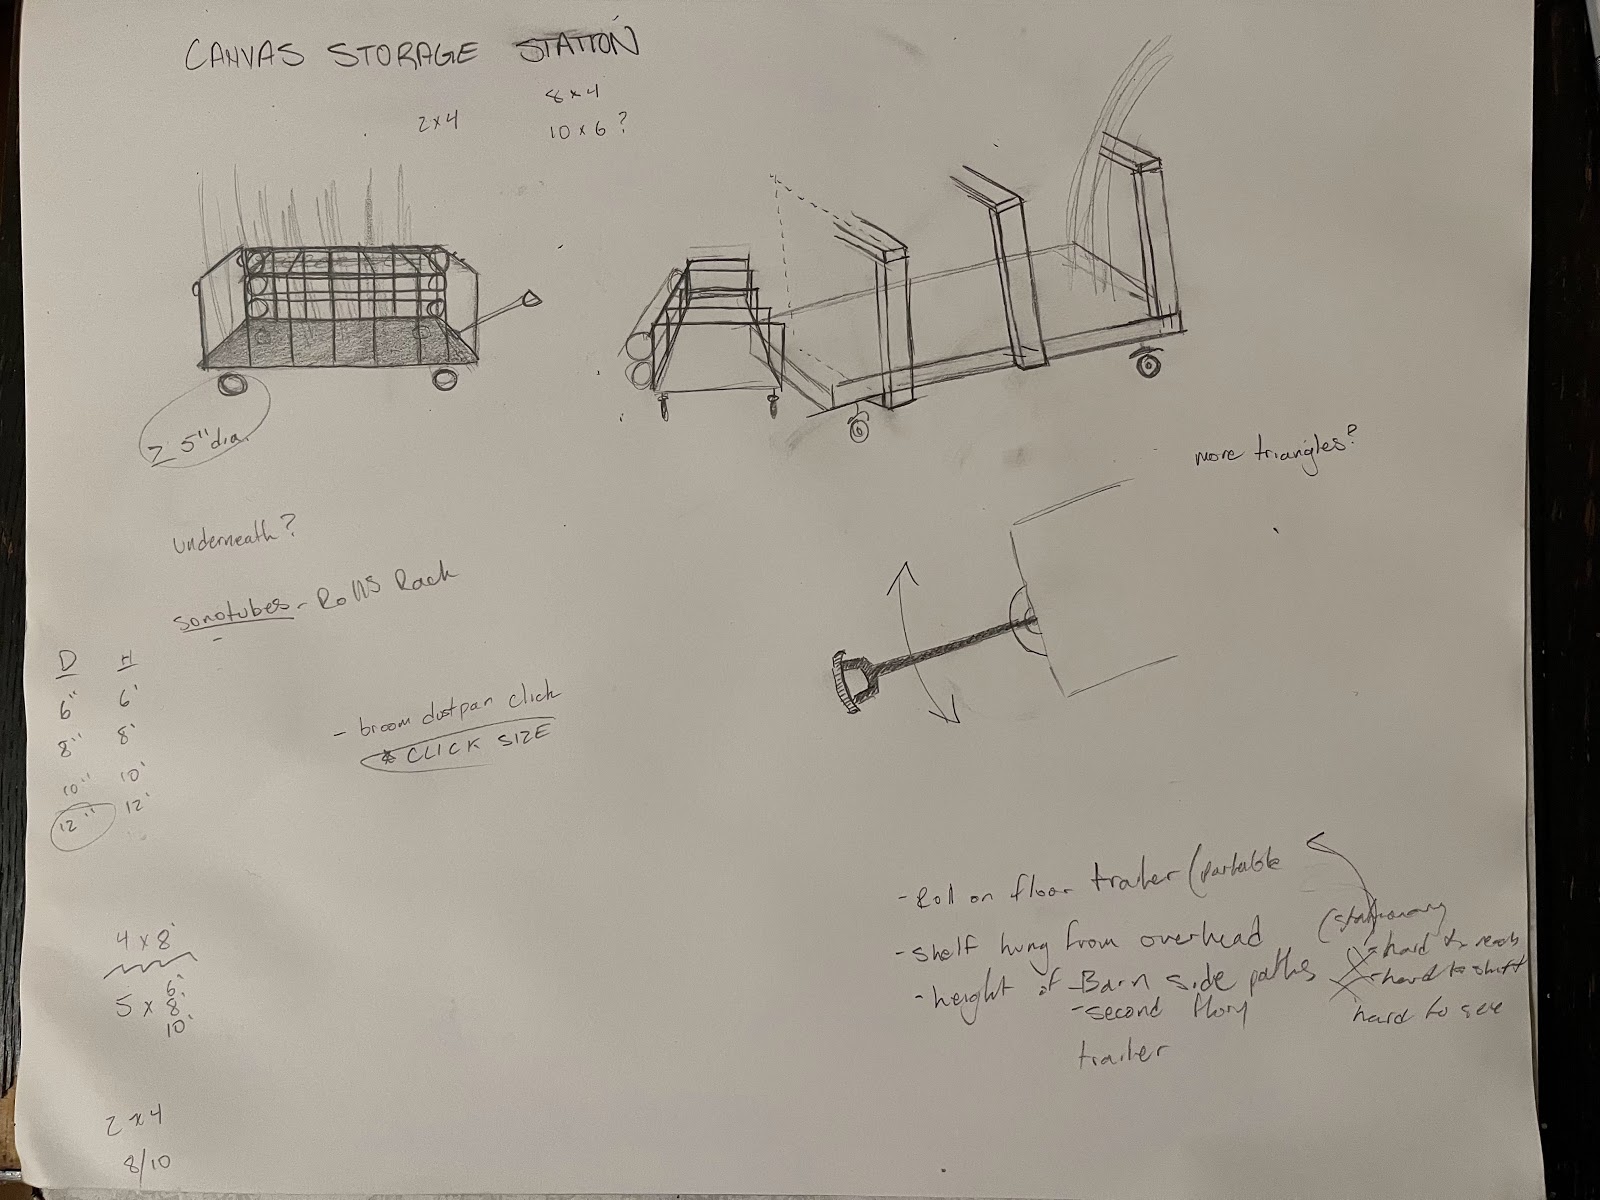 CANVAS STORAGE STATION
8 x 4
2 x 4
10 x 6 ?
≥ 5" dia.
more triangles?
underneath?
sonotubes - Rolls Rack
D H
6" 6'
8" 8'
10" 10'
12" 12'
- broom dustpan click
* CLICK SIZE
- Roll on floor trailer (portable
- shelf hung from overhead (stationary
- hard to reach
- height of Barn side paths - hard to shift
- second
hard to see
trailer
4 x 8'
5 x 6'
8'
10'
2 x 4
8/10